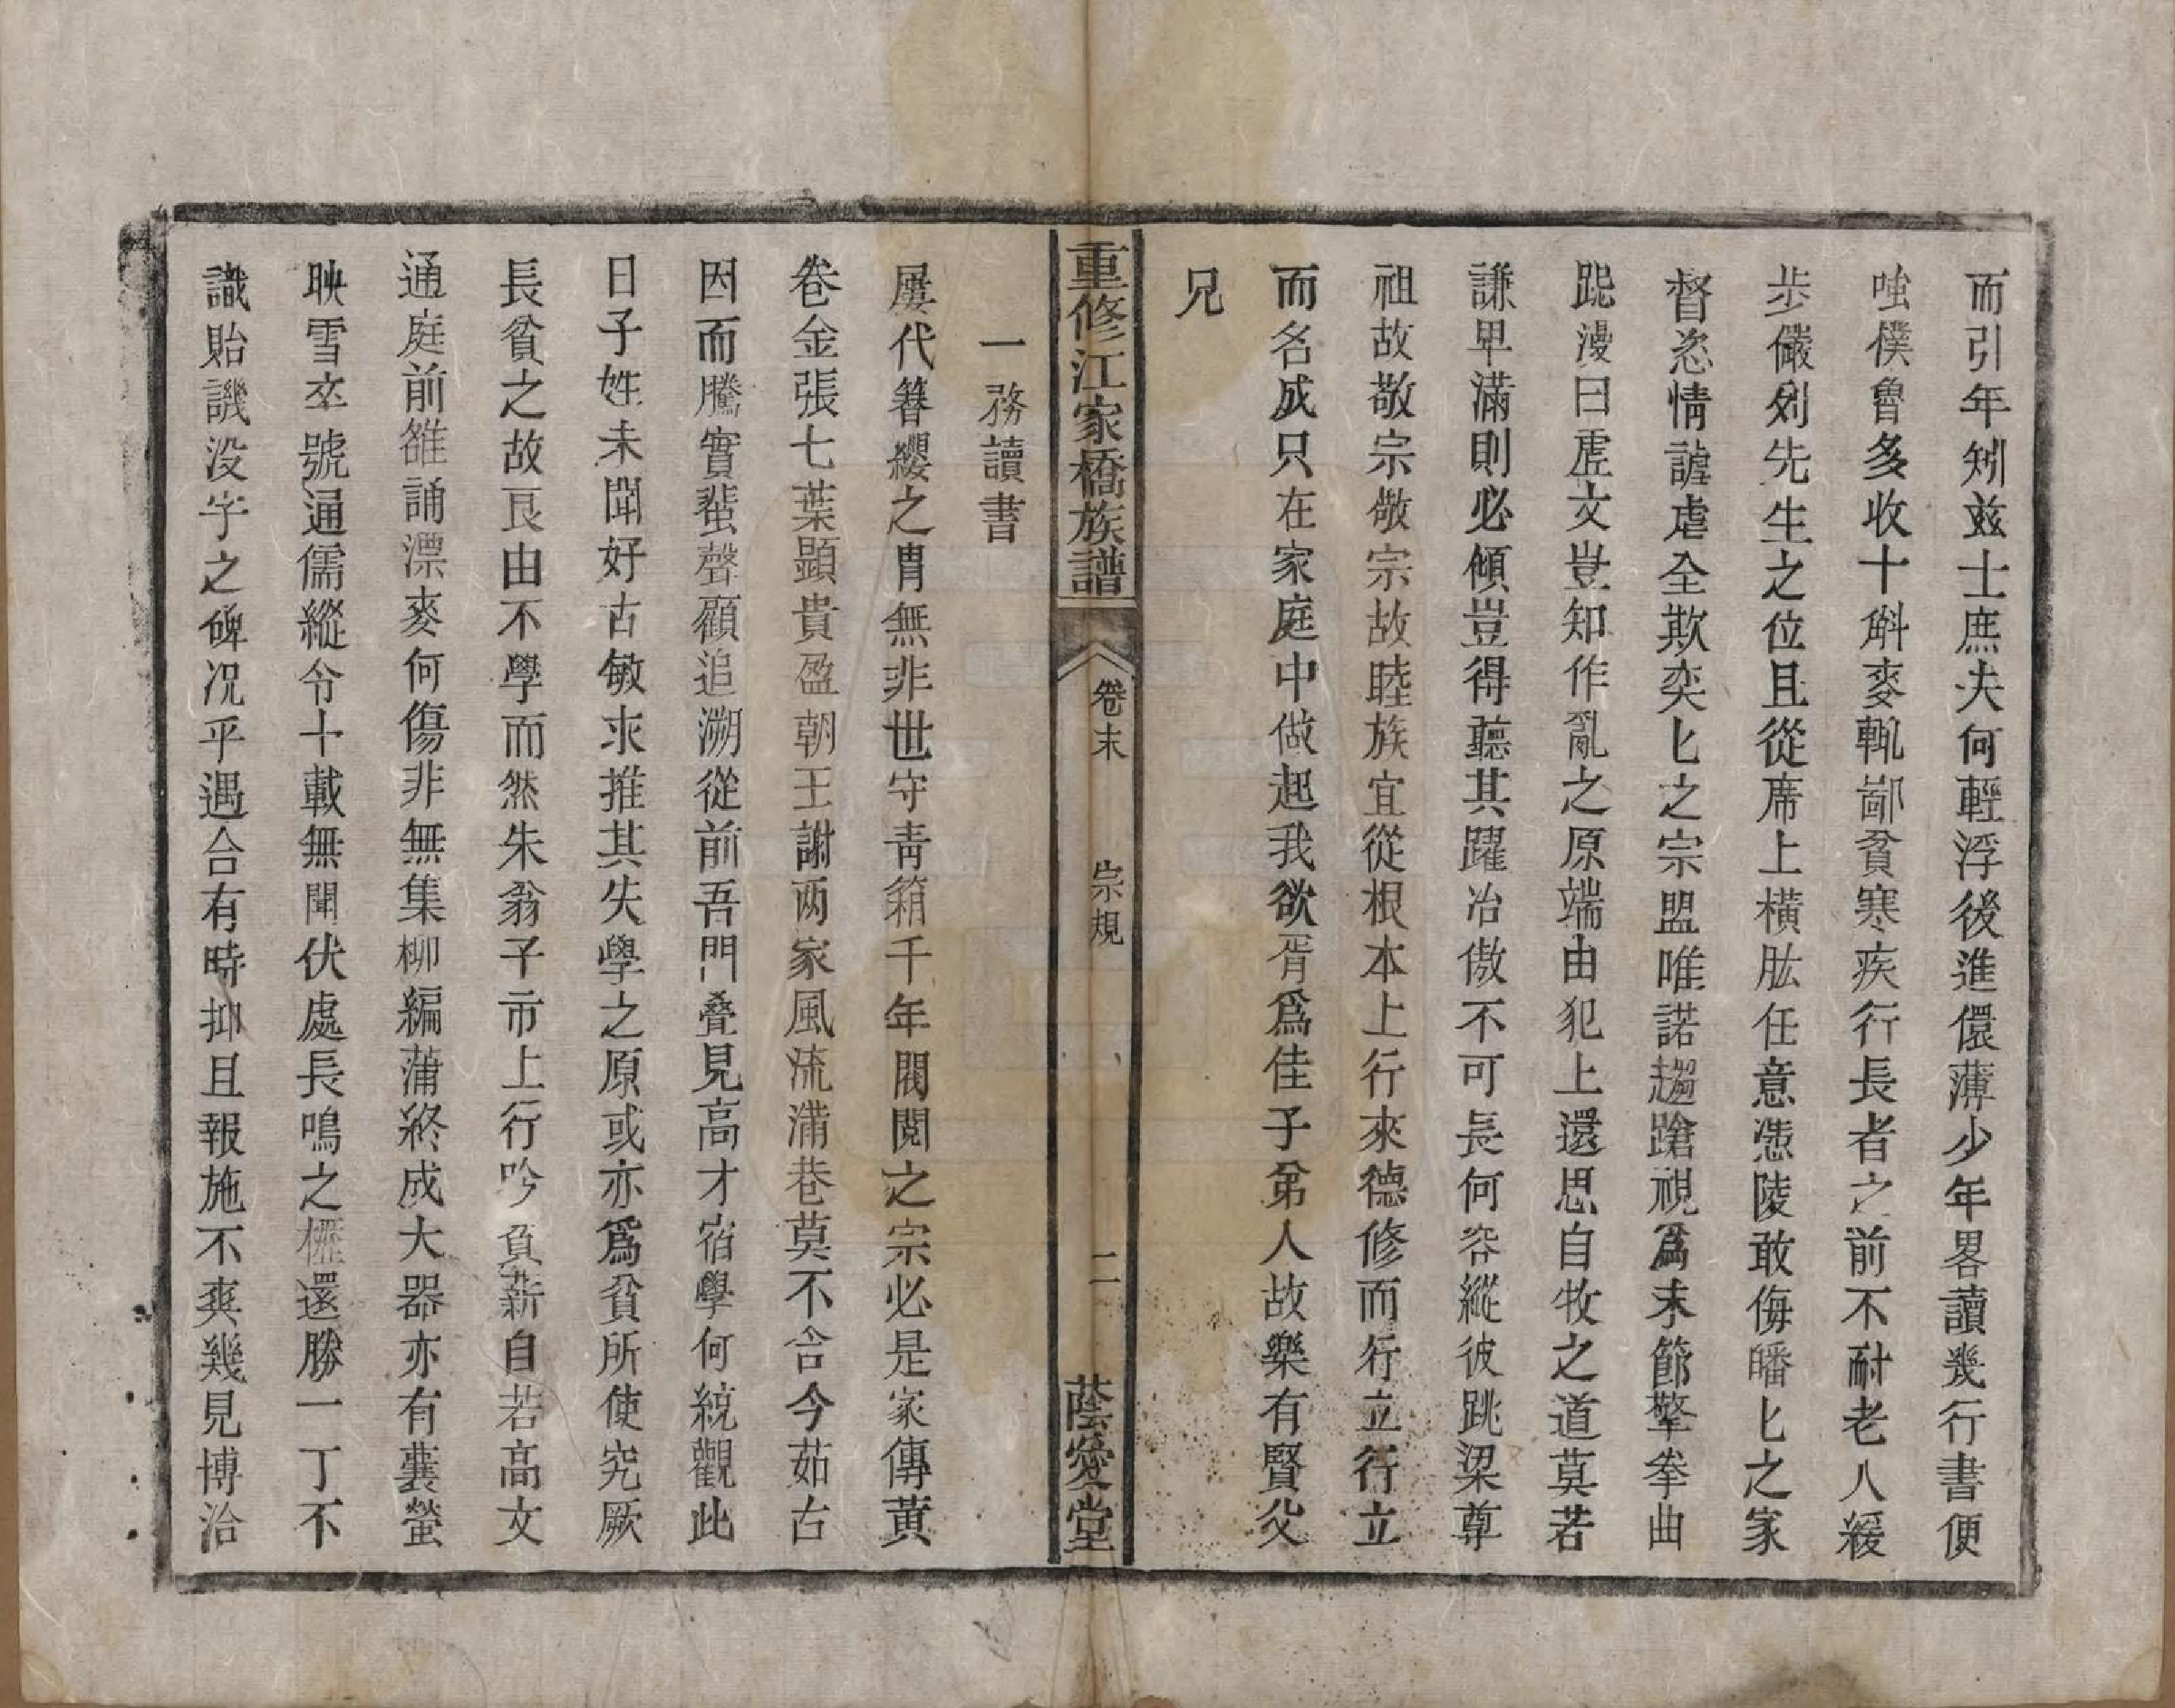 而引年矧玆士庶夫何輕浮後進儇薄少年畧讀幾行書便
嗤僕魯多收十斛麥輒鄙貧寒疾行長者之前不耐老人緩
步儼列先生之位且從席上橫肱任意慿陵敢侮皤匕之家
督恣情謔虐全欺奕匕之宗盟唯諾趨蹌視爲末節擎拳曲
跽漫曰虛文豈知作亂之原端由犯上還思自牧之道莫若
謙卑滿則必傾豈得聽其躍冶傲不可長何容縱彼跳梁尊
祖故敬宗敬宗故睦族宜從根本上行來德修而行立行立
而名成只在家庭中做起我欲胥爲佳子弟人故樂有賢父
兄
重修江家橋族譜 卷末 宗規 二 蔭愛堂
一務讀書
屢代簪纓之冑無非世守靑箱千年閥閱之宗必是家傳黃
卷金張七葉顕貴盈朝王謝两家風流滿巷莫不含今茹古
因而騰實蜚聲顧追溯從前吾門叠見高才宿學何統觀此
日子姓未聞好古敏求推其失學之原或亦爲貧所使究厥
長貧之故良由不學而然朱翁子市上行吟負薪自若高文
通庭前雒誦漂麥何傷非無集柳編蒲終成大器亦有囊螢
映雪卒號通儒縱令十載無聞伏處長鳴之櫪還勝一丁不
識貽譏没字之碑况乎遇合有時抑且報施不爽幾見博洽